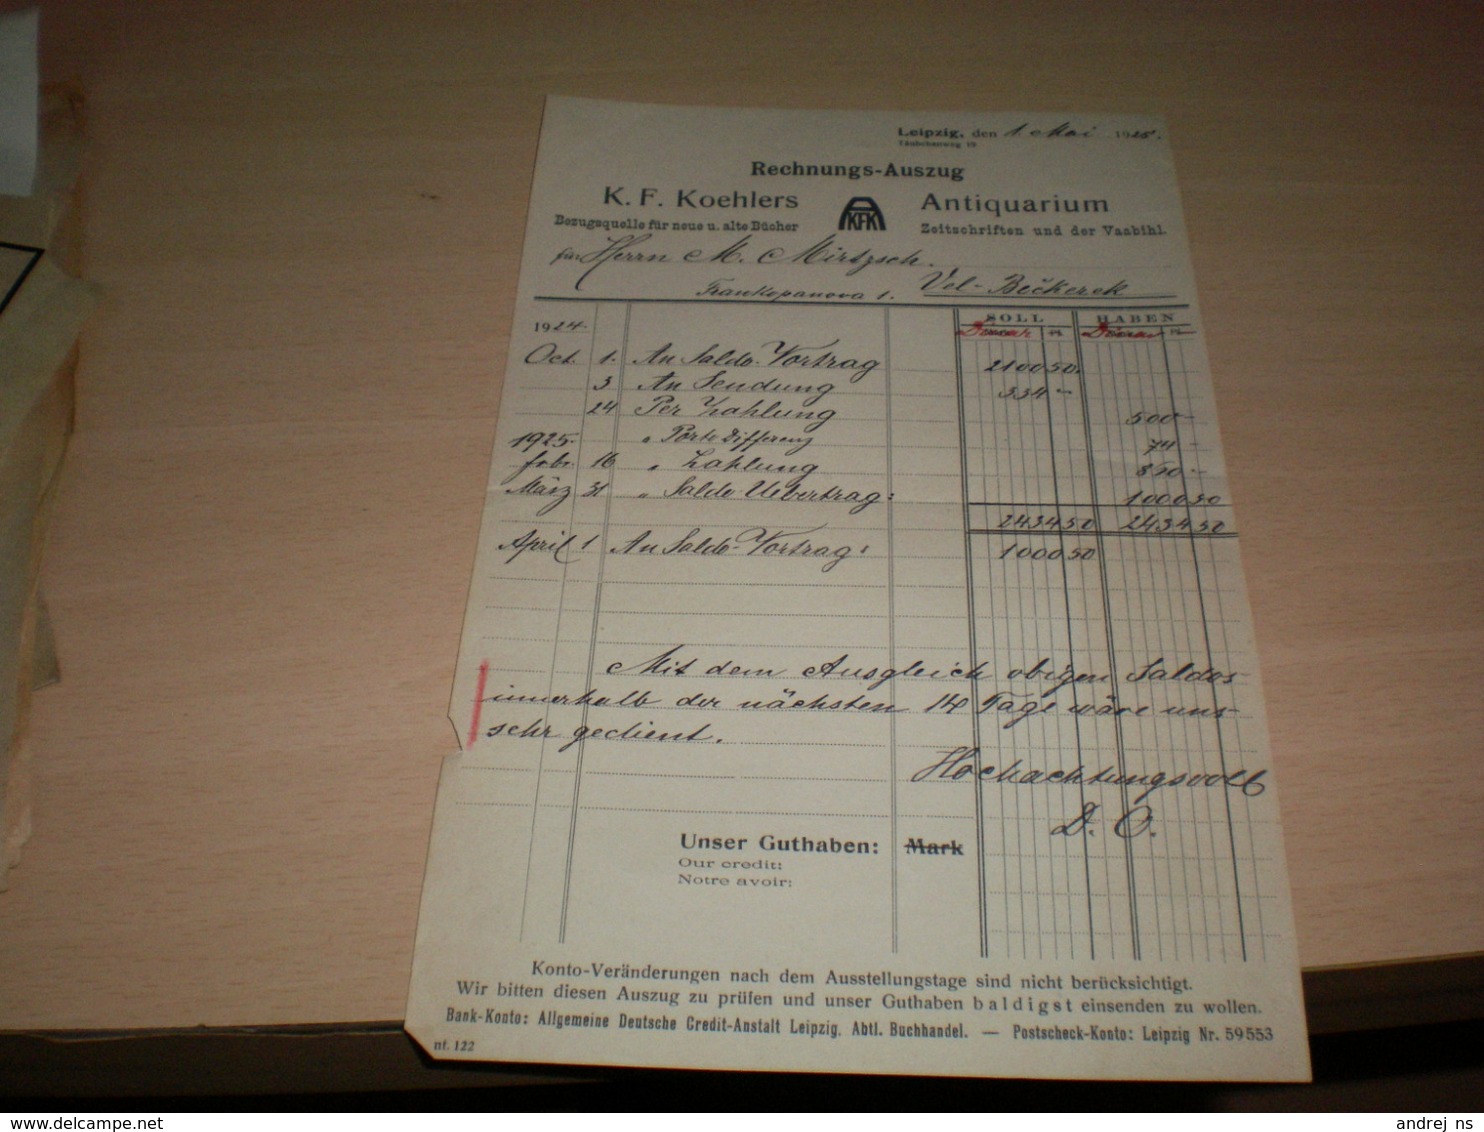 Leipzig, den 1. Mai 1925.
Täubchenweg 19
Rechnungs-Auszug
K. F. Koehlers KFK Antiquarium
Bezugsquelle für neue u. alte Bücher Zeitschriften und der Vasbihl.
für Herrn M. Mirtzsch.
Frankopanova 1. Vel-Bečkerek
SOLL HABEN
1924. Dinar Dinar
Oct. 1. An Saldo-Vortrag 2100 50.
3 An Sendung 334 —
24 Per Zahlung 500 —
1925. " Porto Differenz 74 —
febr. 16 " Zahlung 860 —
März 31 " Saldo Uebertrag: 1000 50
2434 50 2434 50
April 1 An Saldo-Vortrag: 1000 50
Mit dem Ausgleich obigen Saldos
innerhalb der nächsten 14 Tage wäre uns
sehr gedient.
Hochachtungsvoll
D. O.
Unser Guthaben: Mark
Our credit:
Notre avoir:
Konto-Veränderungen nach dem Ausstellungstage sind nicht berücksichtigt.
Wir bitten diesen Auszug zu prüfen und unser Guthaben baldigst einsenden zu wollen.
Bank-Konto: Allgemeine Deutsche Credit-Anstalt Leipzig, Abtl. Buchhandel. — Postscheck-Konto: Leipzig Nr. 59553
nf. 122
andrej ns
www.delcampe.net